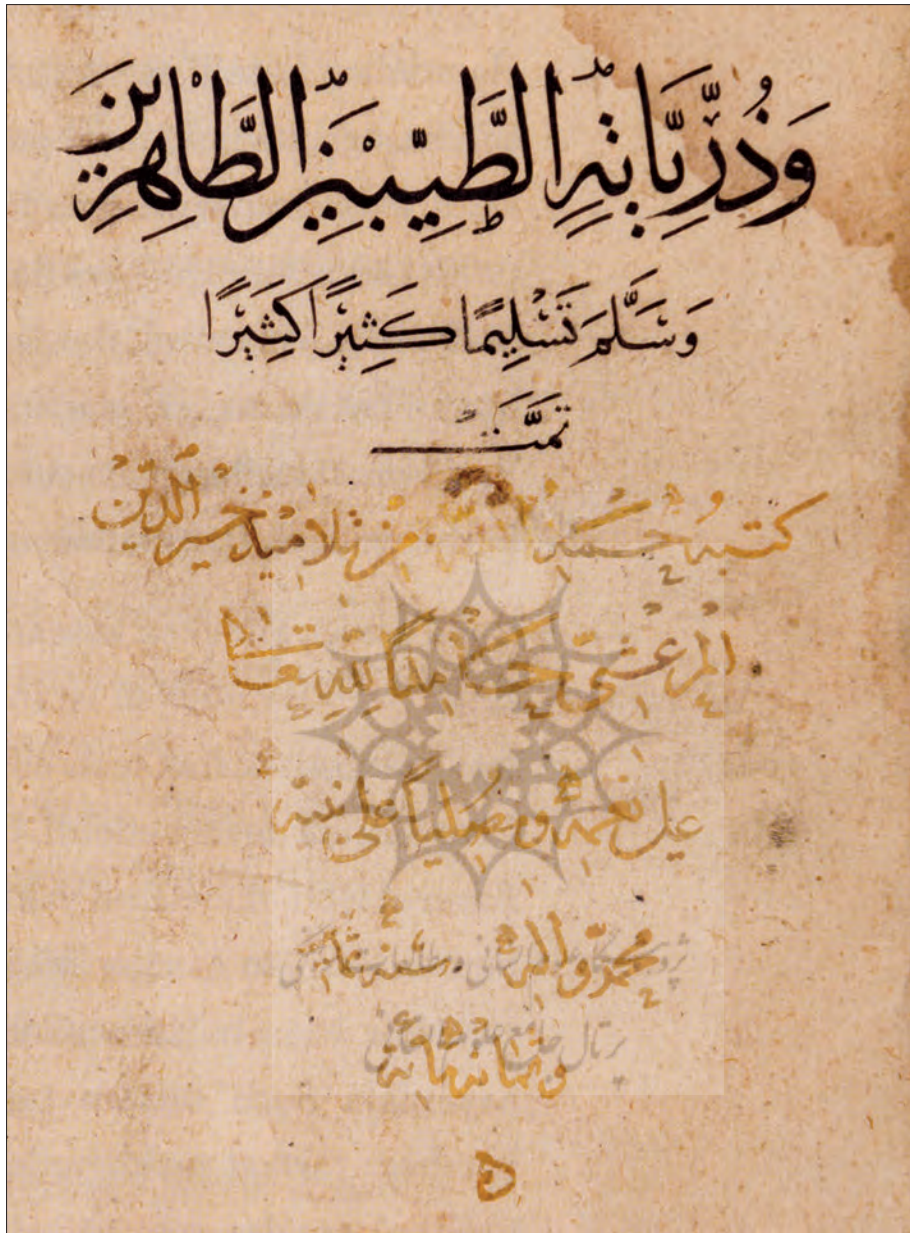 وَذُرِّيَّاتِهِ الطَّيِّبِينَ الطَّاهِرِينَ
وَسَلَّمَ تَسْلِيمًا كَثِيرًا كَثِيرًا
تمَّت
كتبهُ حمد الله من تلاميذ خير الدين
المرعشي حامداً لله تعالى
على نعمه ومصلياً على نبيه
محمد وآله سنة
وثمانمائة
پژوهشگاه علوم انسانی و مطالعات فرهنگی
پرتال جامع علوم انسانی